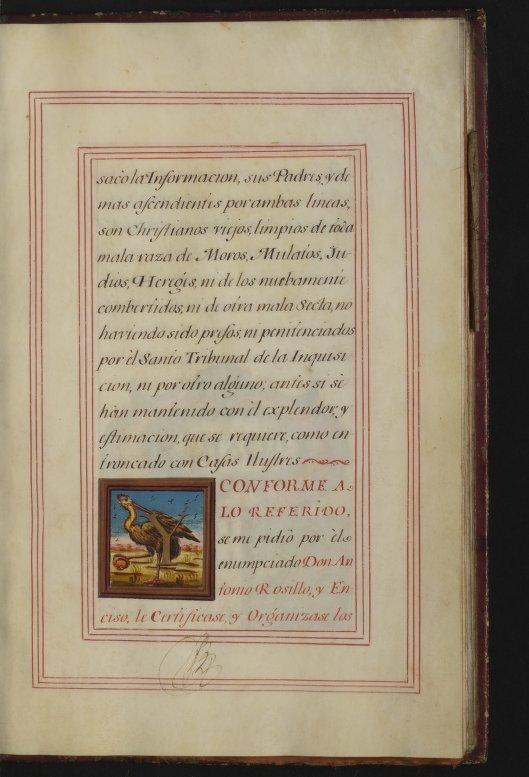 sacò la Informacion, sus Padres, y de
mas ascendientes por ambas lineas,
son Christianos viejos, limpios de toda
mala raza de Moros, Mulatos, Ju-
dios, Hereges, ni de los nuebamente
combertidos, ni de otra mala Secta, no
haviendo sido presos, ni penitenciados
por èl Santo Tribunal de la Inquisi
cion, ni por otro alguno; antes si se
hàn mantenido con èl explendor, y
estimacion, que se requiere, como en
troncado con Casas Ilustres
CONFORME A
LO REFERIDO,
se me pidiò por èl
enumpciado Don An
tonio Rosillo, y En
ciso, le Certificase, y Organizase los